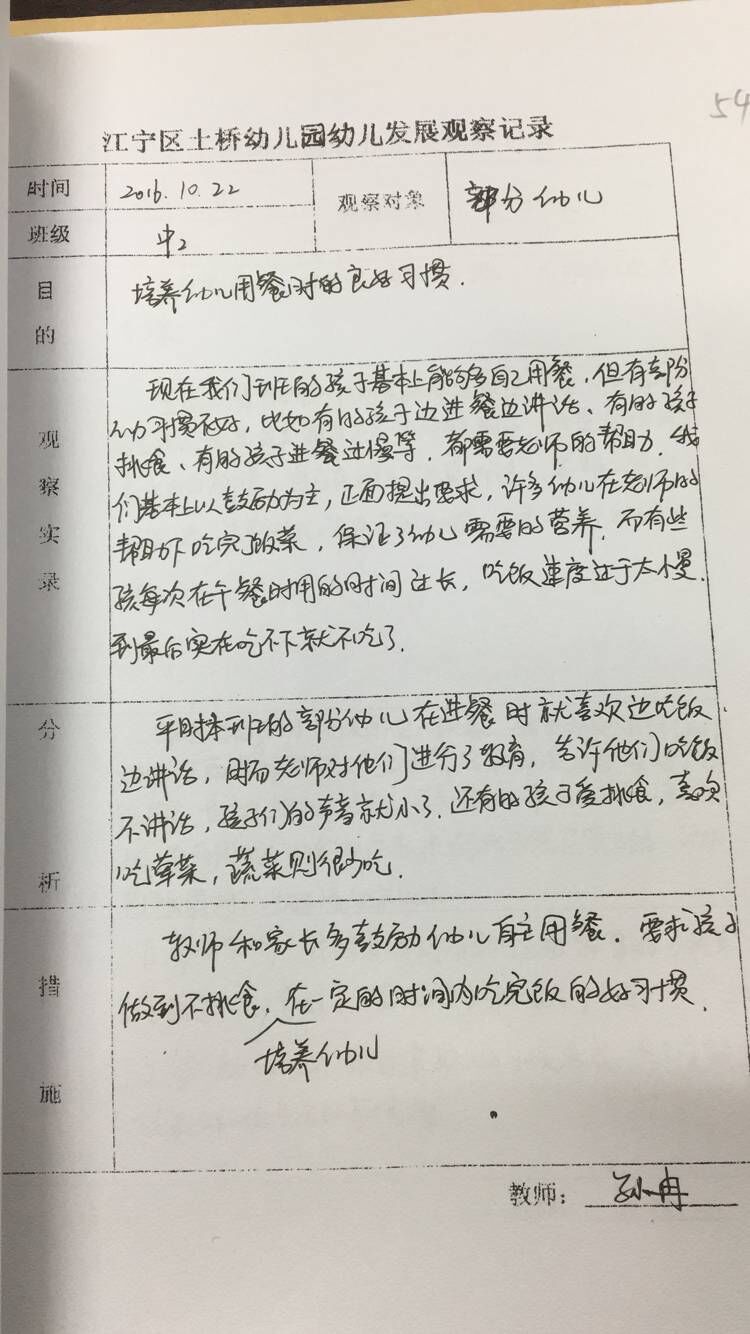 54
江宁区土桥幼儿园幼儿发展观察记录
时间 2016.10.22 观察对象 部分幼儿
班级 中2
目的 培养幼儿用餐时的良好习惯.
观察实录
现在我们班的孩子基本上能够自己用餐，但有部份
幼习惯不好，比如有的孩子边进餐边讲话、有的孩子
挑食、有的孩子进餐过慢等，都需要老师的帮助，我
们基本上以鼓励为主，正面提出要求，许多幼儿在老师的
帮助下吃完了饭菜，保证了幼儿需要的营养，而有些
孩每次在午餐时用的时间过长，吃饭速度过于太慢，
到最后实在吃不下就不吃了.
分析
平时本班的部分幼儿在进餐时就喜欢边吃饭
边讲话，时而老师对他们进行了教育，告许他们吃饭
不讲话，孩子们的声音就小了，还有的孩子爱挑食，喜欢
吃荤菜，蔬菜则很少吃.
措施
教师和家长多鼓励幼儿自主用餐，要求孩子
做到不挑食，在一定的时间内吃完饭的好习惯.
培养幼儿
教师：孙冉